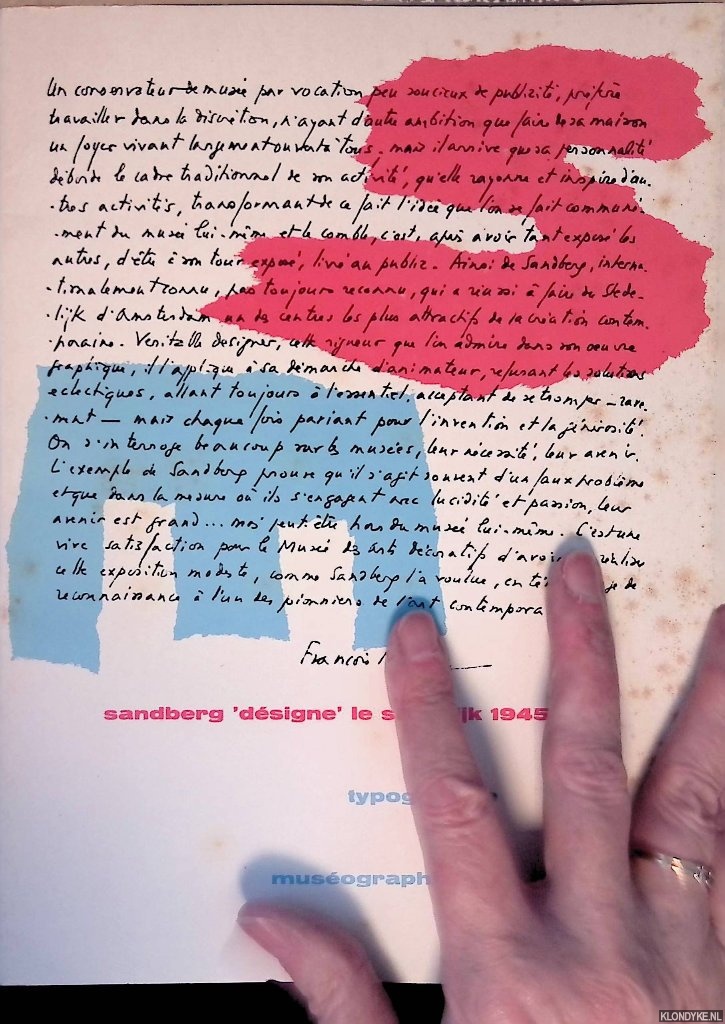 Un conservateur de musée par vocation peu soucieux de publicité, préfère
travailler dans la discrétion, n'ayant d'autre ambition que faire de sa maison
un foyer vivant largement ouvert à tous. mais il arrive que sa personnalité
déborde le cadre traditionnel de son activité, qu'elle rayonne et inspire d'au.
.tres activités, transformant de ce fait l'idée que l'on se fait communé.
.ment du musée lui-même et le comble, c'est, après avoir tant exposé les
autres, d'être à son tour exposé, livré au public. Ainsi de Sandberg, interna.
.tionalement connu, pas toujours reconnu, qui a réussi à faire du Stede-
.lijk d'Amsterdam un des centres les plus attractifs de la création contem.
.poraine. Veritable designer, cette rigueur que l'on admire dans son oeuvre
graphique, il l'applique à sa démarche d'animateur, refusant les solutions
eclectiques, allant toujours à l'essentiel, acceptant de se tromper – rare.
.ment — mais chaque fois pariant pour l'invention et la générosité.
On s'interroge beaucoup sur les musées, leur nécessité, leur avenir.
L'exemple de Sandberg prouve qu'il s'agit souvent d'un faux problème
et que dans la mesure où ils s'engagent avec lucidité et passion, leur
avenir est grand... mais peut-être hors du musée lui-même. C'est une
vive satisfaction pour le Musée des arts décoratifs d'avoir
cette exposition modeste, comme Sandberg l'a voulue, en de
reconnaissance à l'un des pionniers de l'art contempora
François
sandberg 'désigne' le s jk 1945
typog
muséograph
KLONDYKE.NL